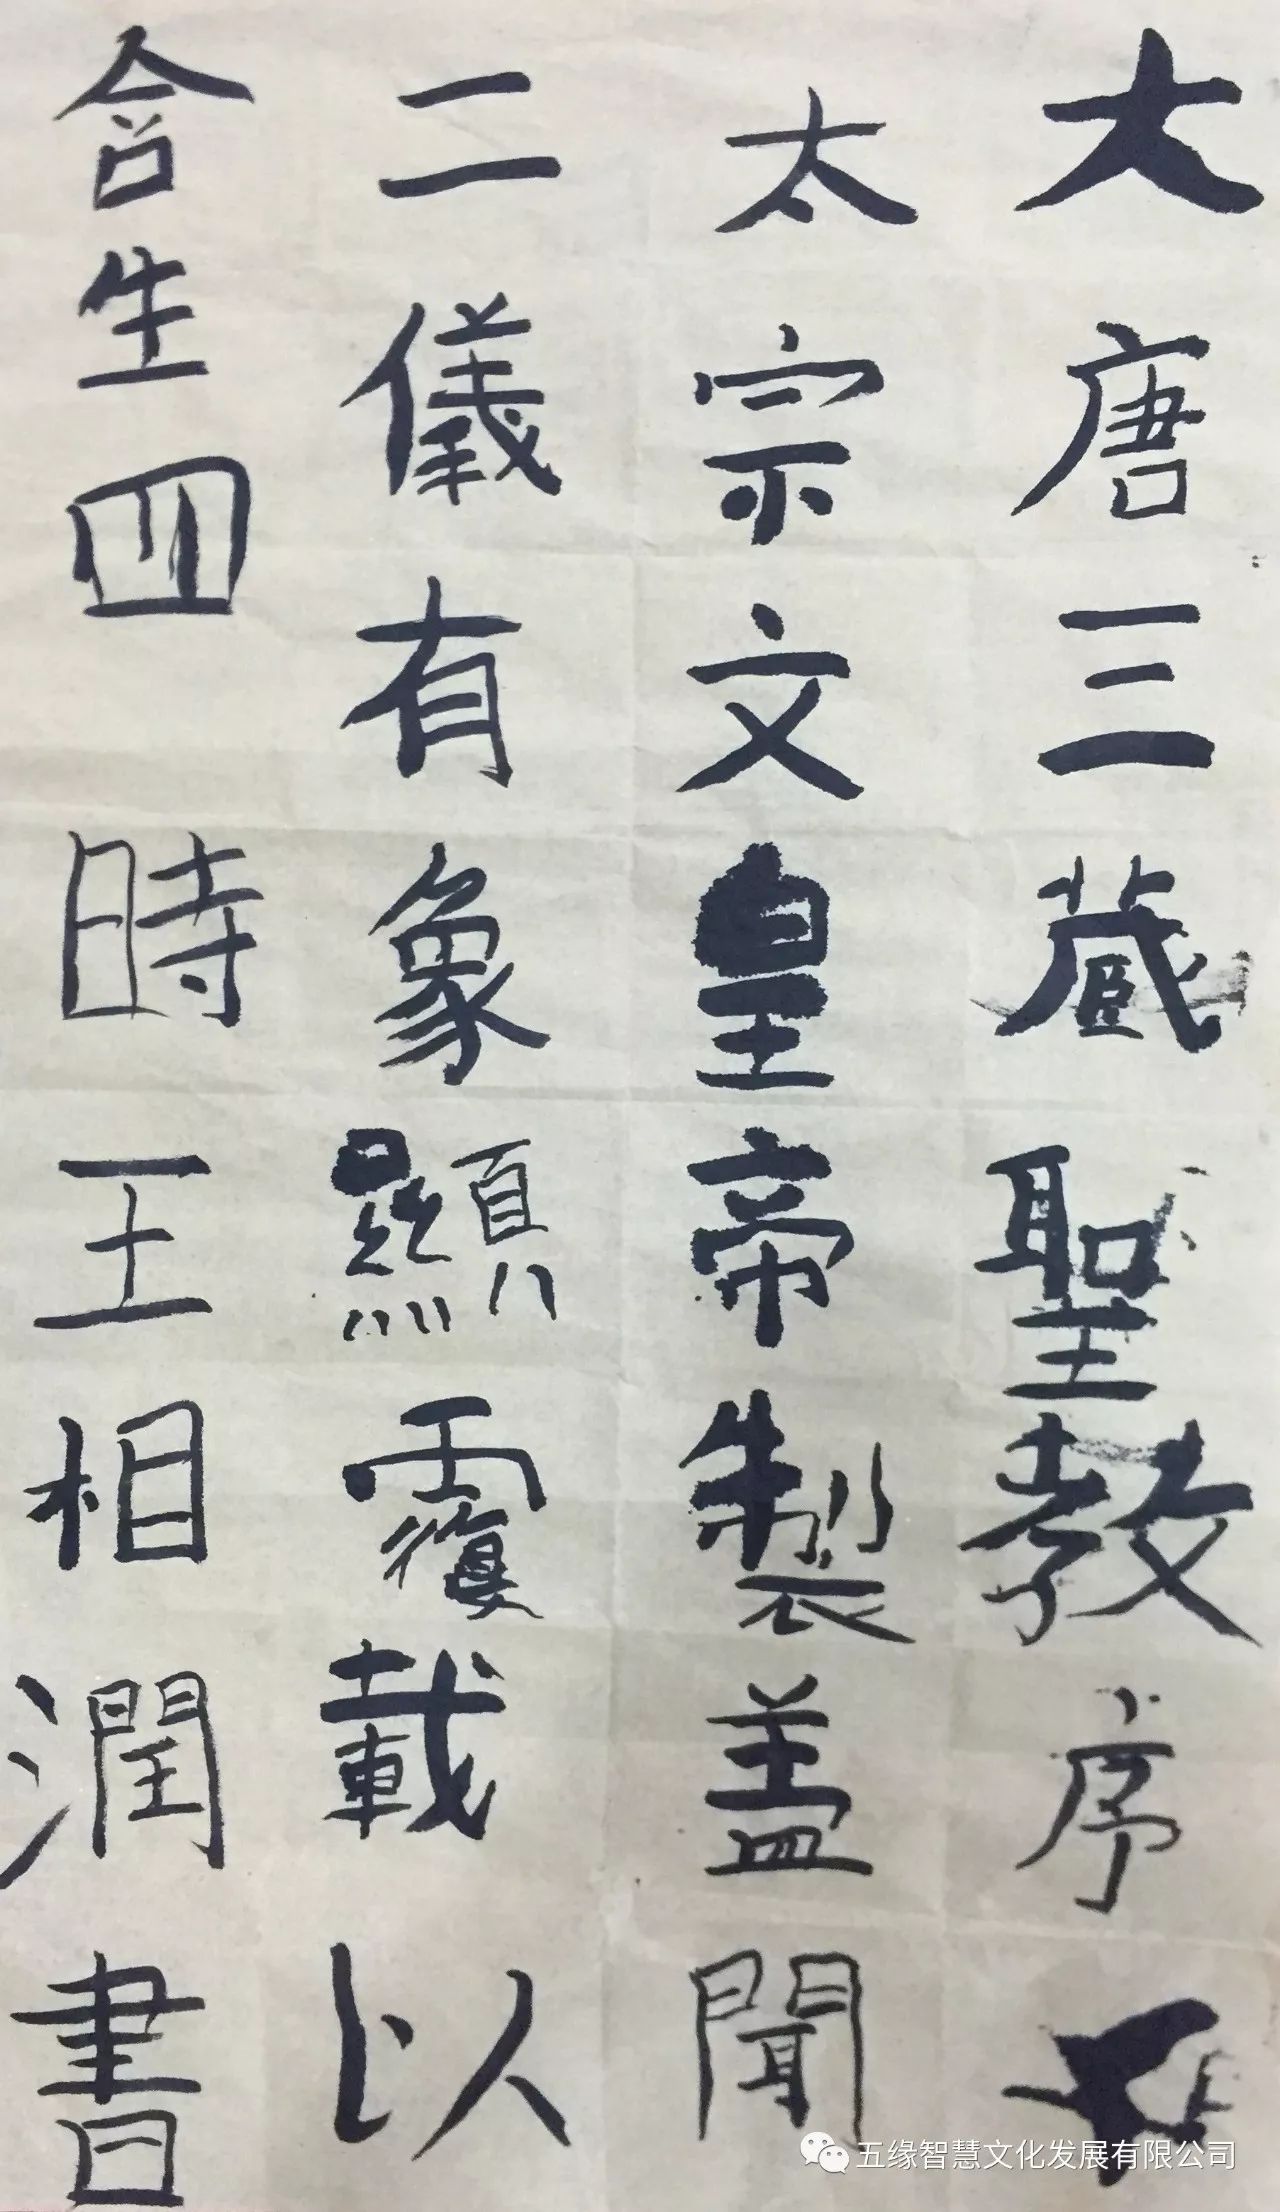 大唐三藏聖教序
太宗文皇帝製盖聞
二儀有象顯覆載以
含生四時王相潤書
五缘智慧文化发展有限公司